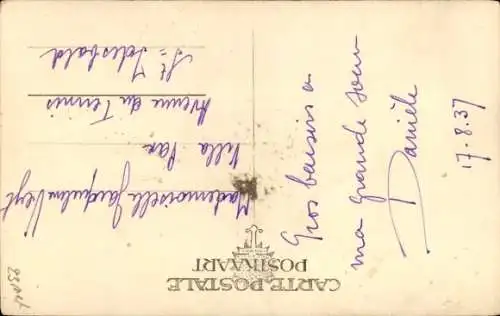 CARTE POSTALE
POSTKAART
Gros baisers a
ma grande sœur
Danièle
17.8.37
Mademoiselle Jacqueline
Villa Pax
Avenue du Tennis
St= Idesbald